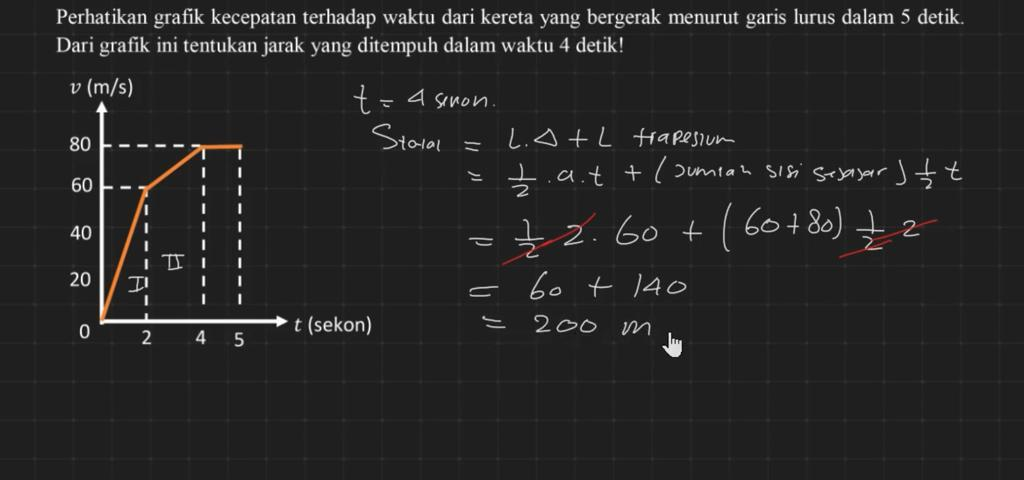 Perhatikan grafik kecepatan terhadap waktu dari kereta yang bergerak menurut garis lurus dalam 5 detik.
Dari grafik ini tentukan jarak yang ditempuh dalam waktu 4 detik!
v (m/s)
80
60
40
20
0
2
4
5
t (sekon)
I
II
t = 4 sekon.
Stotal = L.Δ + L trapesium
= 1/2 . a.t + (Jumlah sisi sejajar) 1/2 t
= 1/2 2. 60 + (60+80) 1/2 2
= 60 + 140
= 200 m